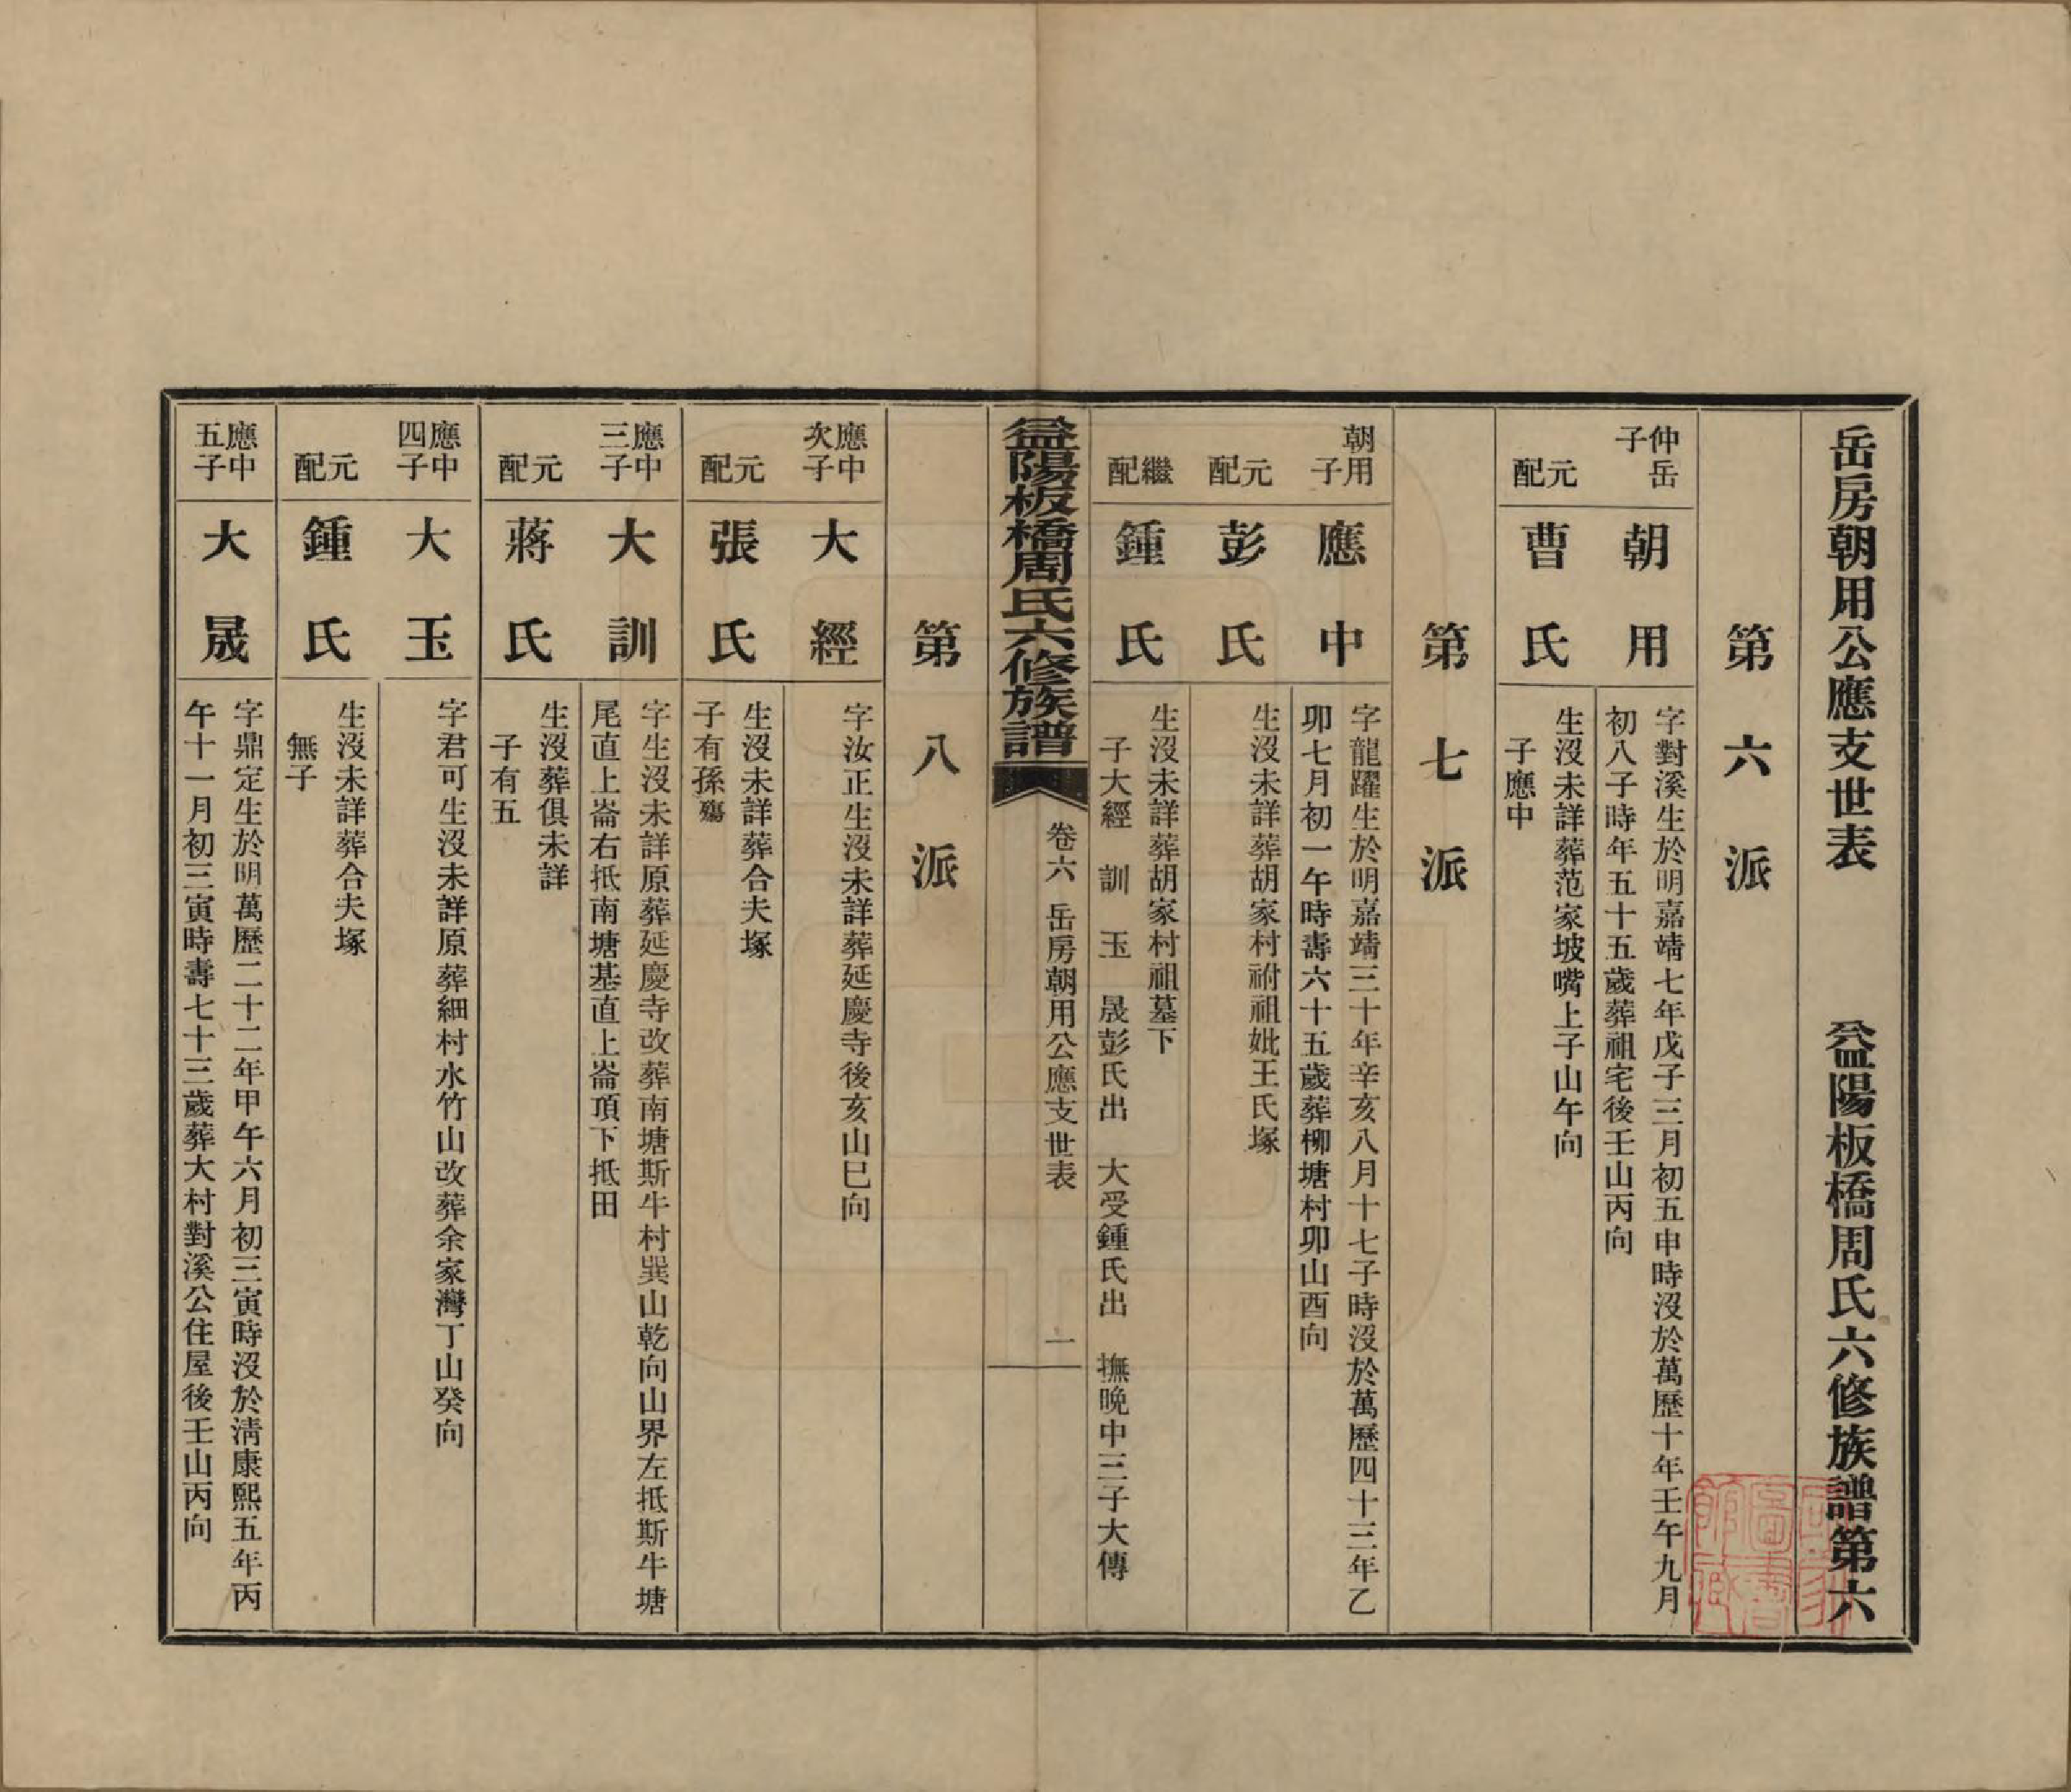 岳房朝用公應支世表　益陽板橋周氏六修族譜第六
第六派
仲岳子
朝用
字對溪生於明嘉靖七年戊子三月初五申時沒於萬歷十年壬午九月
初八子時年五十五歲葬祖宅後壬山丙向
元配
曹氏
生沒未詳葬范家坡嘴上子山午向
子應中
第七派
朝用子
應中
字龍躍生於明嘉靖三十年辛亥八月十七子時沒於萬歷四十三年乙
卯七月初一午時壽六十五歲葬柳塘村卯山酉向
元配
彭氏
生沒未詳葬胡家村祔祖妣王氏塚
繼配
鍾氏
生沒未詳葬胡家村祖墓下
子大經　訓　玉　晟彭氏出　大受鍾氏出　撫晚中三子大傳
益陽板橋周氏六修族譜
卷六　岳房朝用公應支世表
一
第八派
應中次子
大經
字汝正生沒未詳葬延慶寺後亥山巳向
元配
張氏
生沒未詳葬合夫塚
子有孫殤
應中三子
大訓
字生沒未詳原葬延慶寺改葬南塘斯牛村巽山乾向山界左抵斯牛塘
尾直上崙右抵南塘基直上崙項下抵田
元配
蔣氏
生沒葬俱未詳
子有五
應中四子
大玉
字君可生沒未詳原葬細村水竹山改葬余家灣丁山癸向
元配
鍾氏
生沒未詳葬合夫塚
無子
應中五子
大晟
字鼎定生於明萬歷二十二年甲午六月初三寅時沒於清康熙五年丙
午十一月初三寅時壽七十三歲葬大村對溪公住屋後壬山丙向